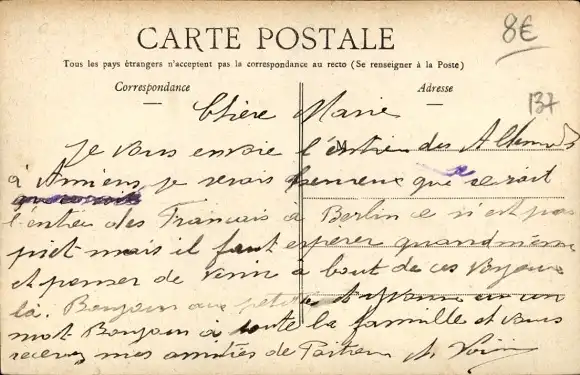 8€
CARTE POSTALE
Tous les pays étrangers n'acceptent pas la correspondance au recto (Se renseigner à la Poste)
Correspondance
Adresse
137
Chère Marie
M
Je vous envoie l'entrée des Allemands
à Amiens je serais heureux que se serait
l'entrée des Francais à Berlin ce n'est pas
piet mais il faut espérer quandmême
et penser de venir à bout de ces
là. Bonjour aux et en un
mot Bonjour à toute la famille et vous
recevez mes amitiés de